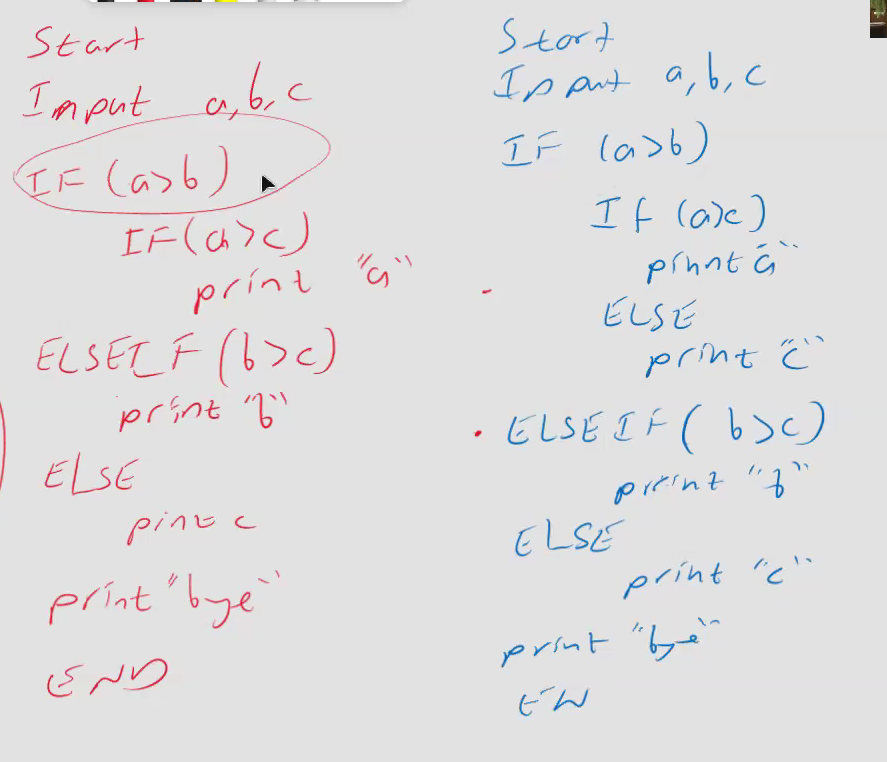 Start
Input a,b,c
IF (a>b)
IF(a>c)
print "a"
ELSEIF (b>c)
print "b"
ELSE
pint c
print "bye"
END
Start
Input a,b,c
IF (a>b)
If (a>c)
print "a"
ELSE
print "c"
ELSEIF( b>c)
print "b"
ELSE
print "c"
print "bye"